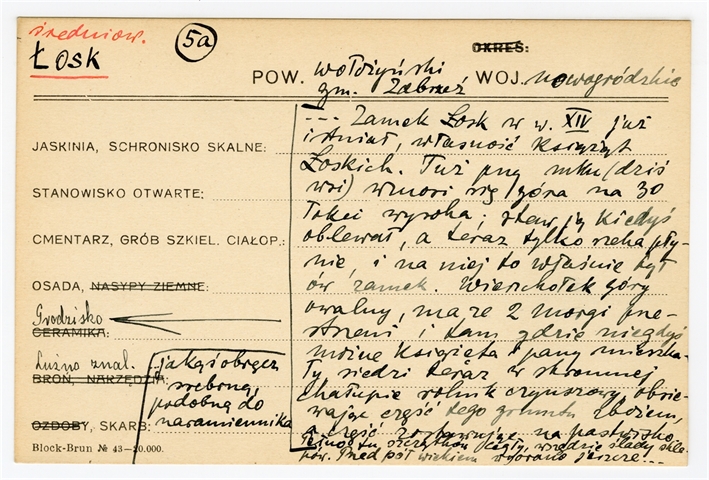 średniow.
Łosk
5a
OKRES:
POW. wołożyński
gm. Zabrzeź
WOJ. nowogródzkie
JASKINIA, SCHRONISKO SKALNE:
STANOWISKO OTWARTE:
CMENTARZ, GRÓB SZKIEL. CIAŁOP.:
OSADA, NASYPY ZIEMNE:
Grodzisko
CERAMIKA:
Luźno znal.
BROŃ, NARZĘDZIA:
OZDOBY, SKARB:
jakąś obręcz
srebrną,
podobną do
naramiennika
Block-Brun № 43-20.000.
--- Zamek Łosk w w. XIV już
istniał, własność Książąt
Łoskich. Tuż przy mku (dziś
wsi) wznosi się góra na 30
łokci wysoka; staw ją kiedyś
oblewał, a teraz tylko rzeka pły-
nie, i na niej to właśnie był
ów zamek. Wierzchołek góry
owalny, ma ze 2 morgi prze-
strzeni i tam gdzie niegdyś
można książęta i pany mieszka-
ły siedzi teraz w skromnej
chałupie rolnik czynszowy, obsie-
wając część tego gruntu zbożem,
a część zostawując na pastwisko.
Pełno tu szczątków cegły, wszędzie ślady skle-
pów. Przed pół wiekiem wyorano jeszcze...